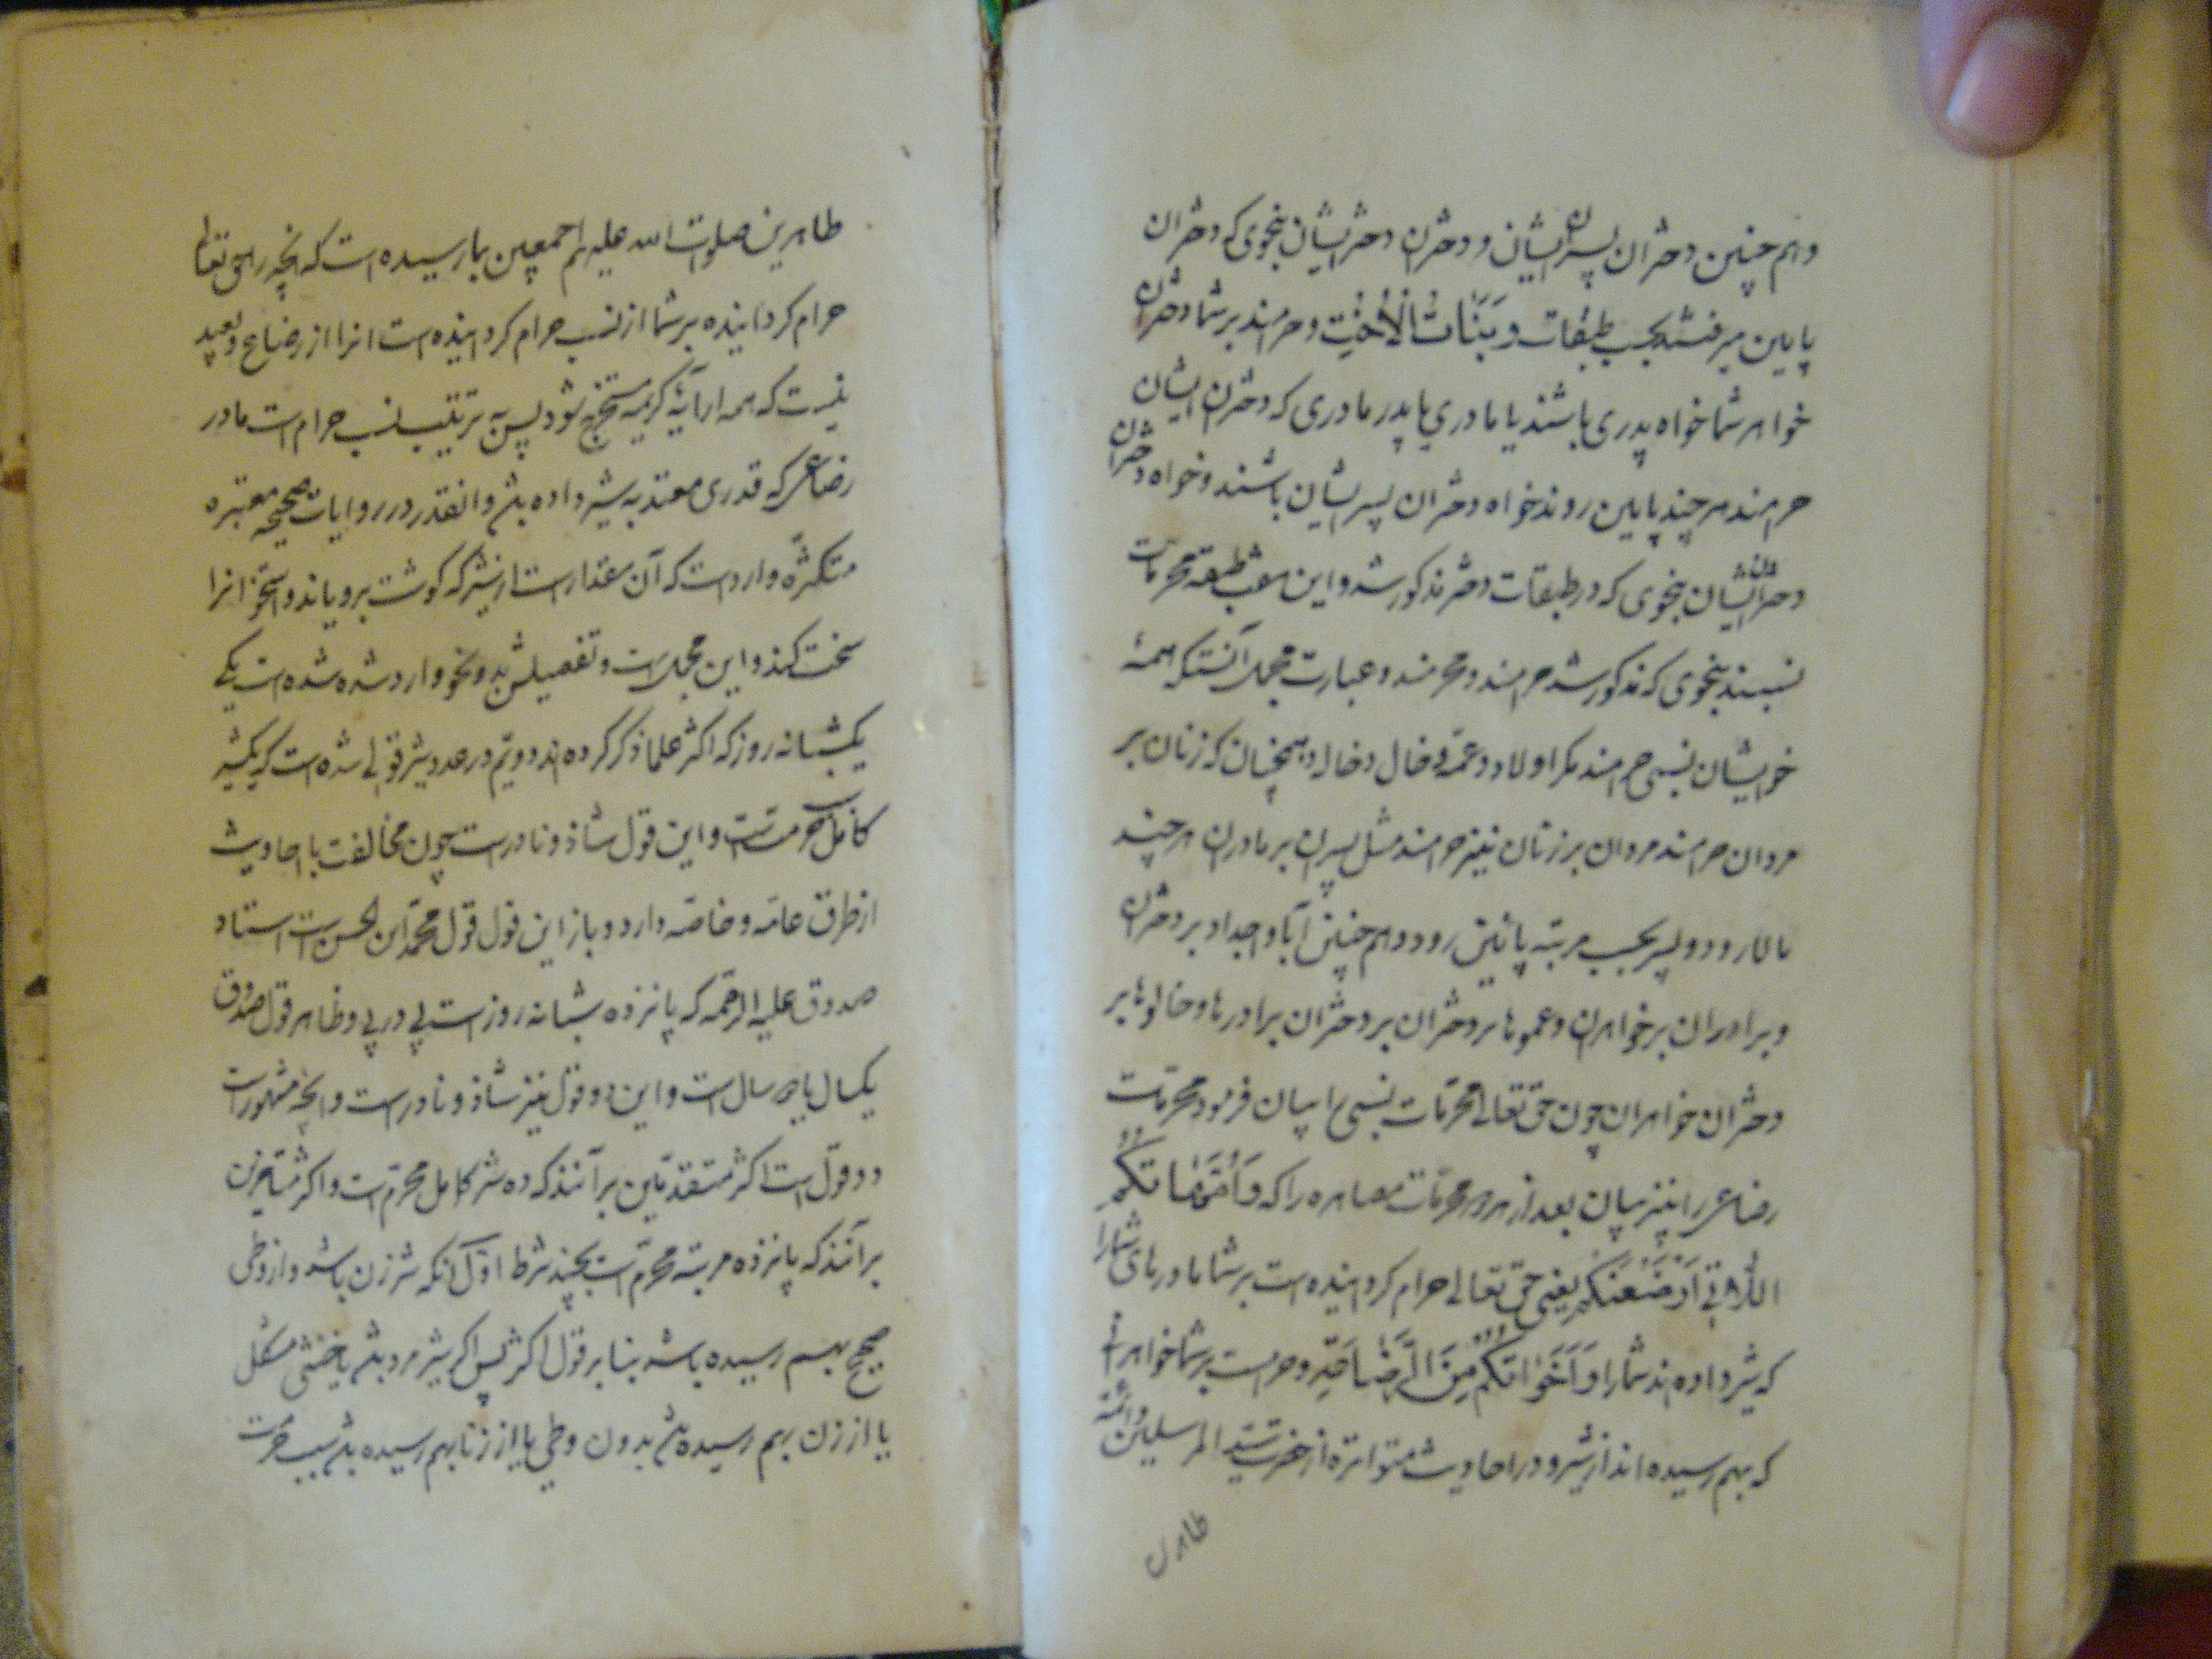 و هم چنین دختران پسران ایشان و دختران دختر ایشان بنحوی که دختران
پایین میرفتند بحسب طبقات وَبَنَاتُ الْأُخْتِ و حرامند بر شما دختران
خواهر شما خواه پدری باشند یا مادری یا پدر مادری که دختران ایشان
حرامند هر چند پایین روند خواه دختران پسر ایشان باشند و خواه دختران
دختران ایشان بنحوی که در طبقات دختر مذکور شد و این هفت طبقه محرمات
نسبند بنحوی که مذکور شد حرامند و محرمند و عبارت مجمل آنستکه همهٔ
خویشان نسبی حرامند مکر اولاد و عمه و خال و خاله و همچنان که زنان بر
مردان حرامند مردان بر زنان نیز حرامند مثل پسران بر مادران هر چند
بالا رود و پسر بحسب مرتبه پائین رود و هم چنین آبا و اجداد بر دختران
و برادران بر خواهران و عموها بر دختران بر دختران برادرها و خالوها بر
دختران خواهران چون حق تعالی محرمات نسبی را بیان فرمود محرمات
رضاعی را نیز بیان بعد از محرمات مصاهره را که وَأُمَّهَاتُكُمُ
اللَّاتِي أَرْضَعْنَكُمْ یعنی حق تعالی حرام کردانیده است بر شما مادرهای شما را
که شیر داده اند شما را وَأَخَوَاتُكُمْ مِنَ الرَّضَاعَةِ و حرامست بر شما خواهرانی
که بهم رسیده اند از شیر و در احادیث متواتره از حضرت سید المرسلین و ائمه
طاهرین
طاهرین صلوات الله علیهم اجمعین بما رسیده است که انچه را حق تعالی
حرام کردانیده بر شما از نسب حرام کردانیده است انرا از رضاع و بعید
نیست که همه از آیهٔ کریمه مستخرج شود پس به ترتیب نسب حرام است مادر
رضاعی که قدری معتد به شیر داده باشد و انقدر در روایات صحیحه معتبره
متکثره وارد است که آن مقدار است از شیر که کوشت برویاند و استخوانرا
سخت کند و این مجمل است و تفصیلش بدو نحو وارد شده شده است یکی
یکشبانه روز که اکثر علما ذکر کرده اند دویم در عدد شیر قولی شده است که یکشیر
کامل محرمست و این قول شاذ و نادرست چون مخالفت با احادیث
از طرق عامه و خاصه دارد و باز این قول قول محمد ابن الحسن است استاد
صدوق علیه الرحمه که پانزده شبانه روز است پی در پی و ظاهر قول صدوق
یکسال یا دو سال است و این دو قول نیز شاذ و نادر است و انچه مشهور است
دو قول است اکثر متقدمین بر آنند که ده شیر کامل محرم است و اکثر متاخرین
بر آنند که پانزده مرتبه محرم است بچند شرط اول آنکه شیر زن باشد و از وطی
صحیح بهم رسیده باشد بنا بر قول اکثر پس اکر شیر مرد باشد یا خنثی مشکل
یا از زن بهم رسیده باشد بدون وطی یا از زنا بهم رسیده باشد سبب حرمت